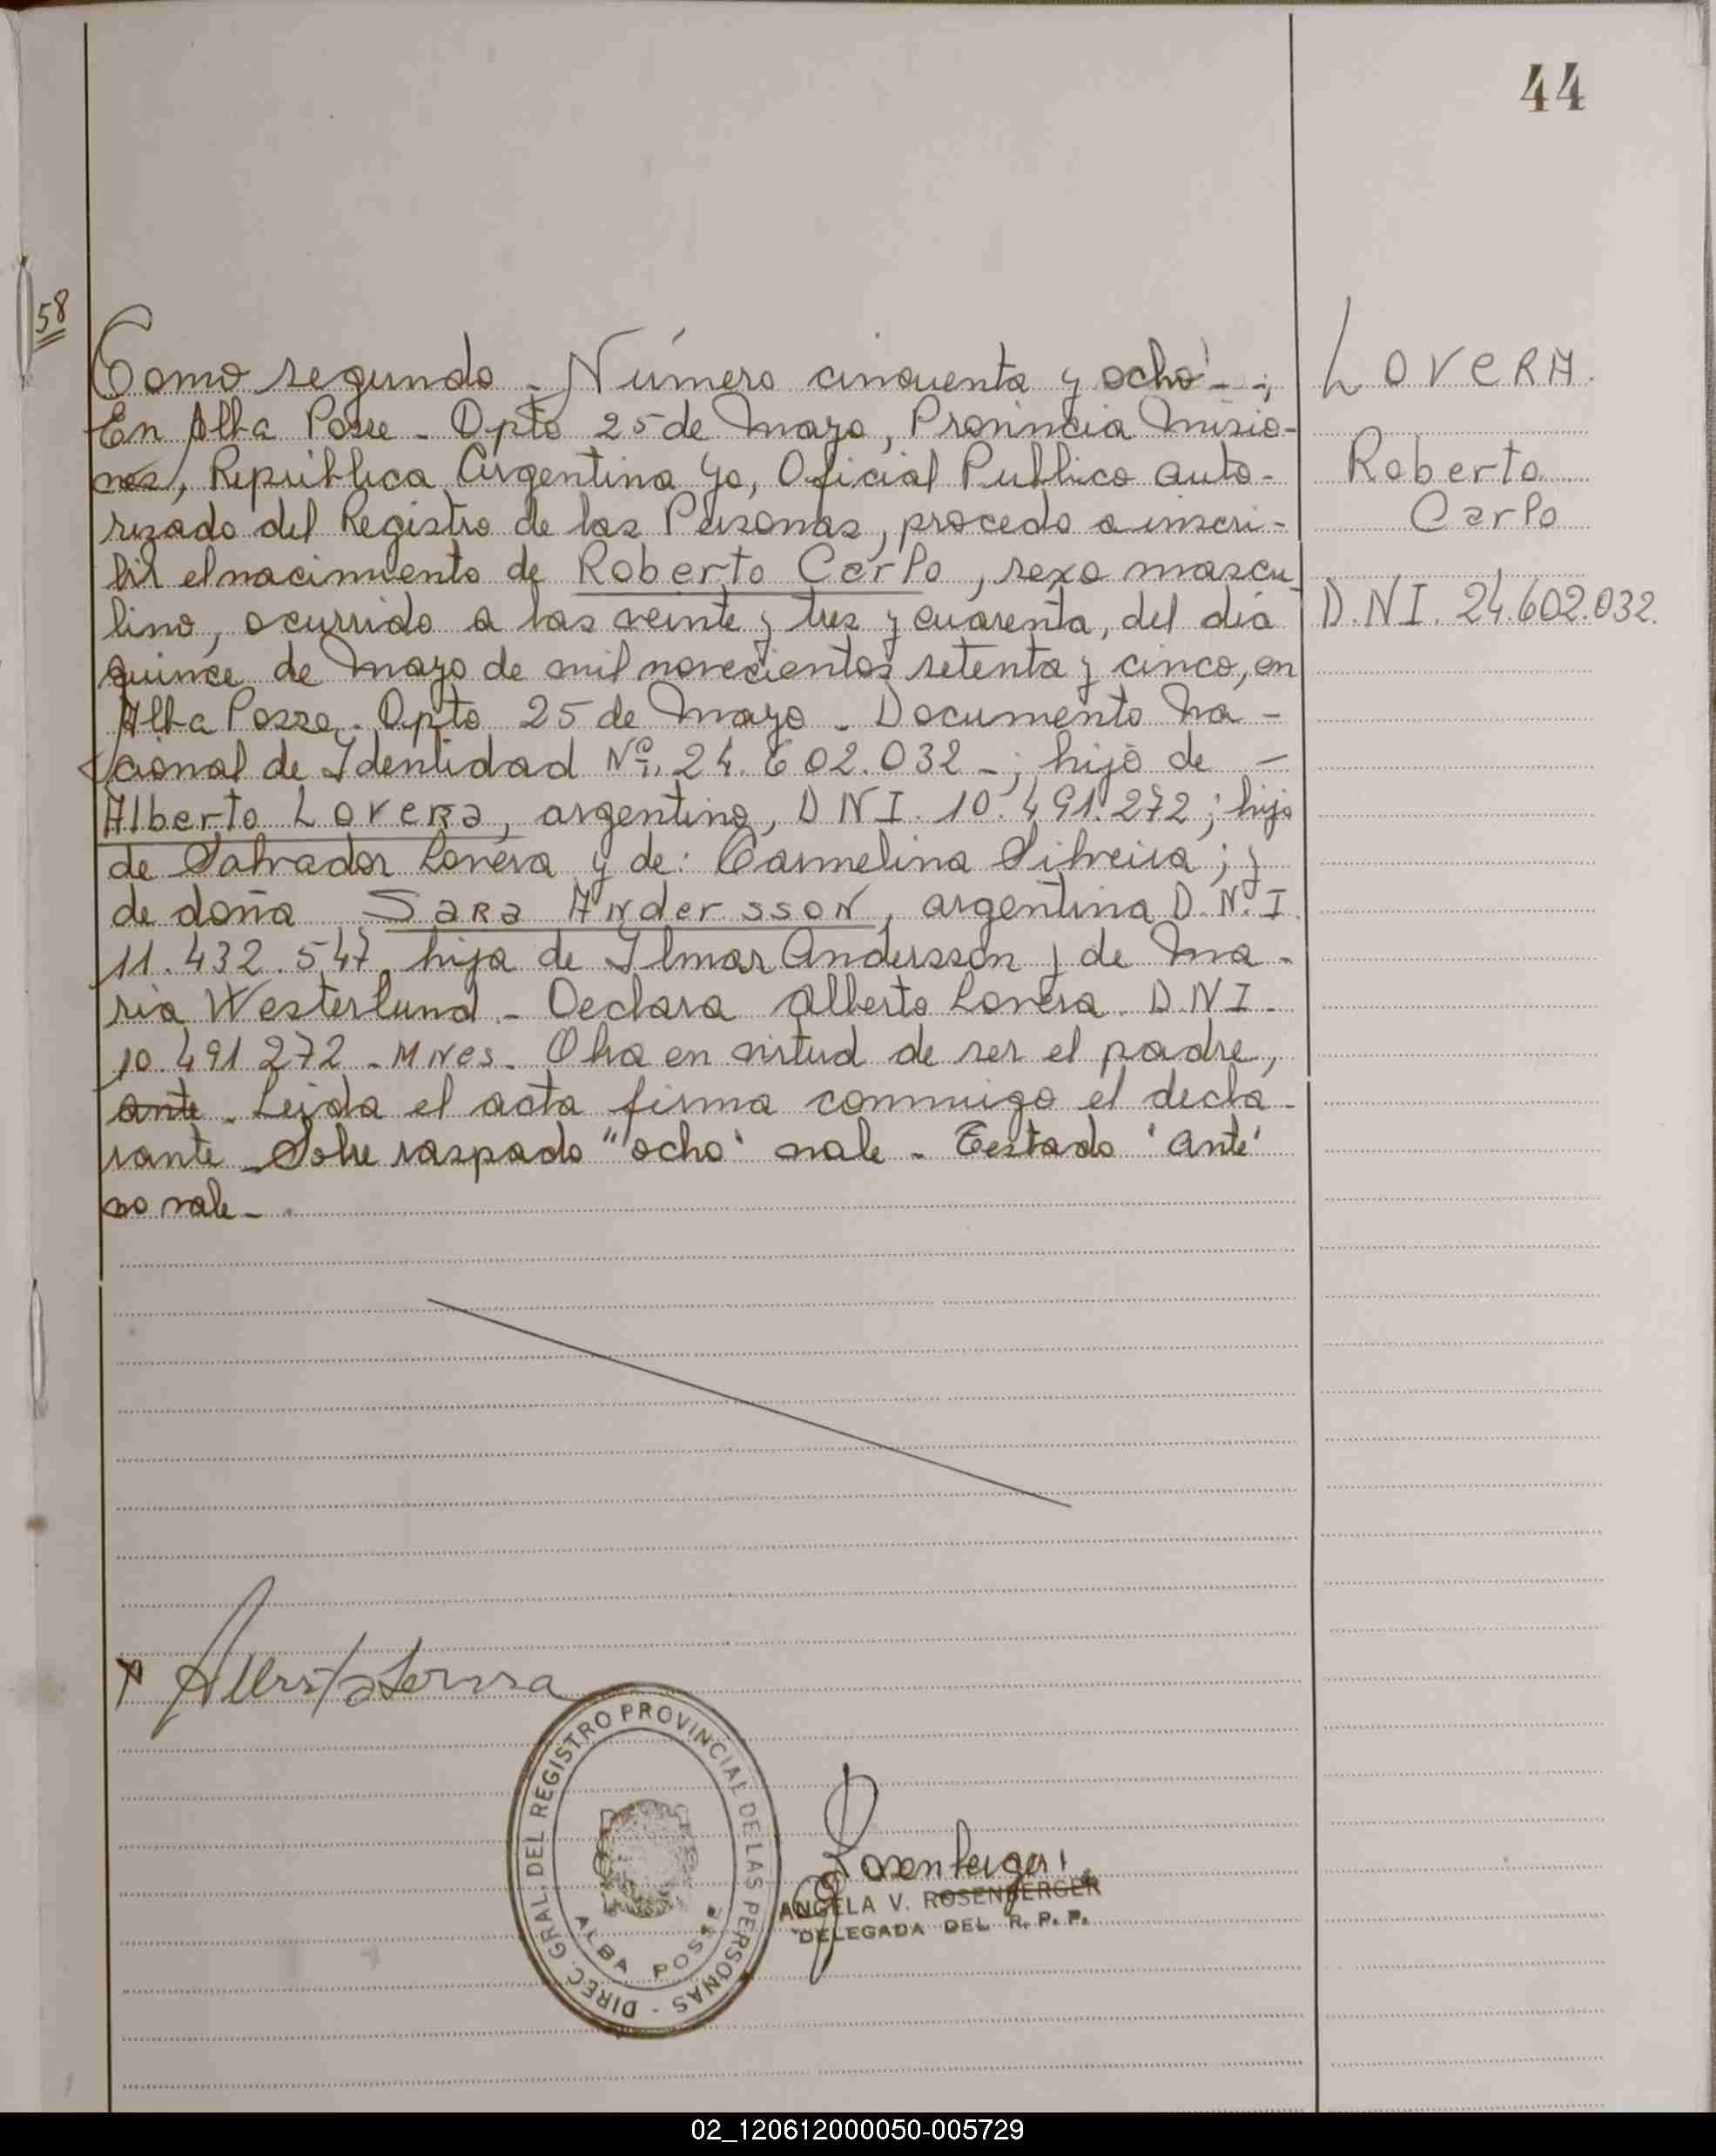 44
58
Tomo segundo - Número cincuenta y ocho - - ;
En Alba Posse - Dpto 25 de Mayo, Provincia Misio-
nes, República Argentina Yo, Oficial Publico auto-
rizado del Registro de las Personas, procedo a inscri-
bir el nacimiento de Roberto Carlo, sexo mascu
lino, ocurrido a las veinte y tres y cuarenta, del día
quince de Mayo de mil novecientos setenta y cinco, en
Alba Posse. Dpto 25 de Mayo - Documento Na-
cional de Identidad Nº. 24.602.032 - ; hijo de -
Alberto Lovera, argentino, D N I. 10.491.272 ; hijo
de Salvador Lovera y de: Carmelina Silveira ; y
de doña Sara Andersson, argentina D. N. I.
11.432.547 hija de Ilmar Andersson y de Ma-
ria Westerlund. - Declara Alberto Lovera. D.N.I.
10.491.272 - Mnes. Oba en virtud de ser el padre,
ante. Leida el acta firma conmigo el decla-
rante - Sobre raspado "ocho" vale - Testado "ante"
no vale -
LOVERA.
Roberto
Carlo
D.N.I. 24.602.032.
x Alberto Lovera
DIREC. GRAL. DEL REGISTRO PROVINCIAL DE LAS PERSONAS -
ALBA POSSE
Rosenberger
ANGELA V. ROSENBERGER
DELEGADA DEL R. P. P.
02_120612000050-005729